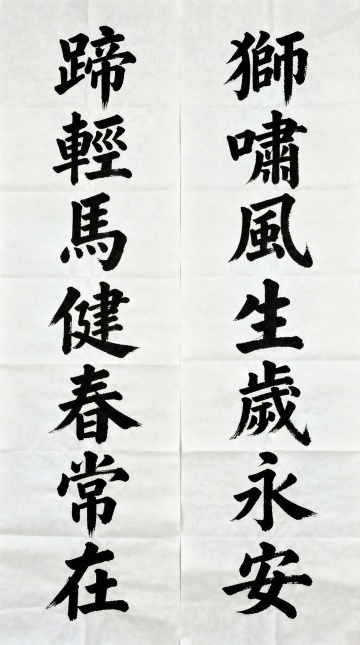 獅嘯風生歲永安
蹄輕馬健春常在